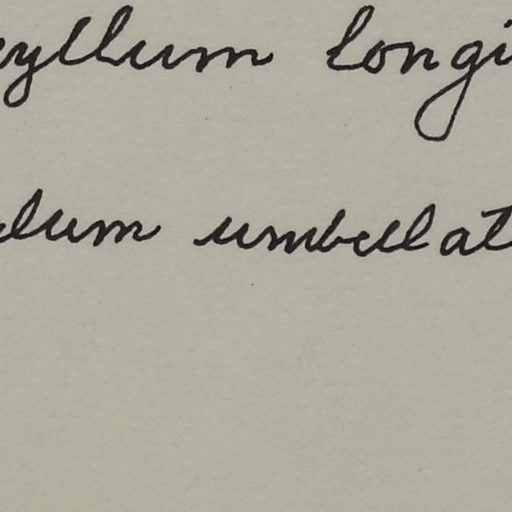 yllum longi
lum umbellat